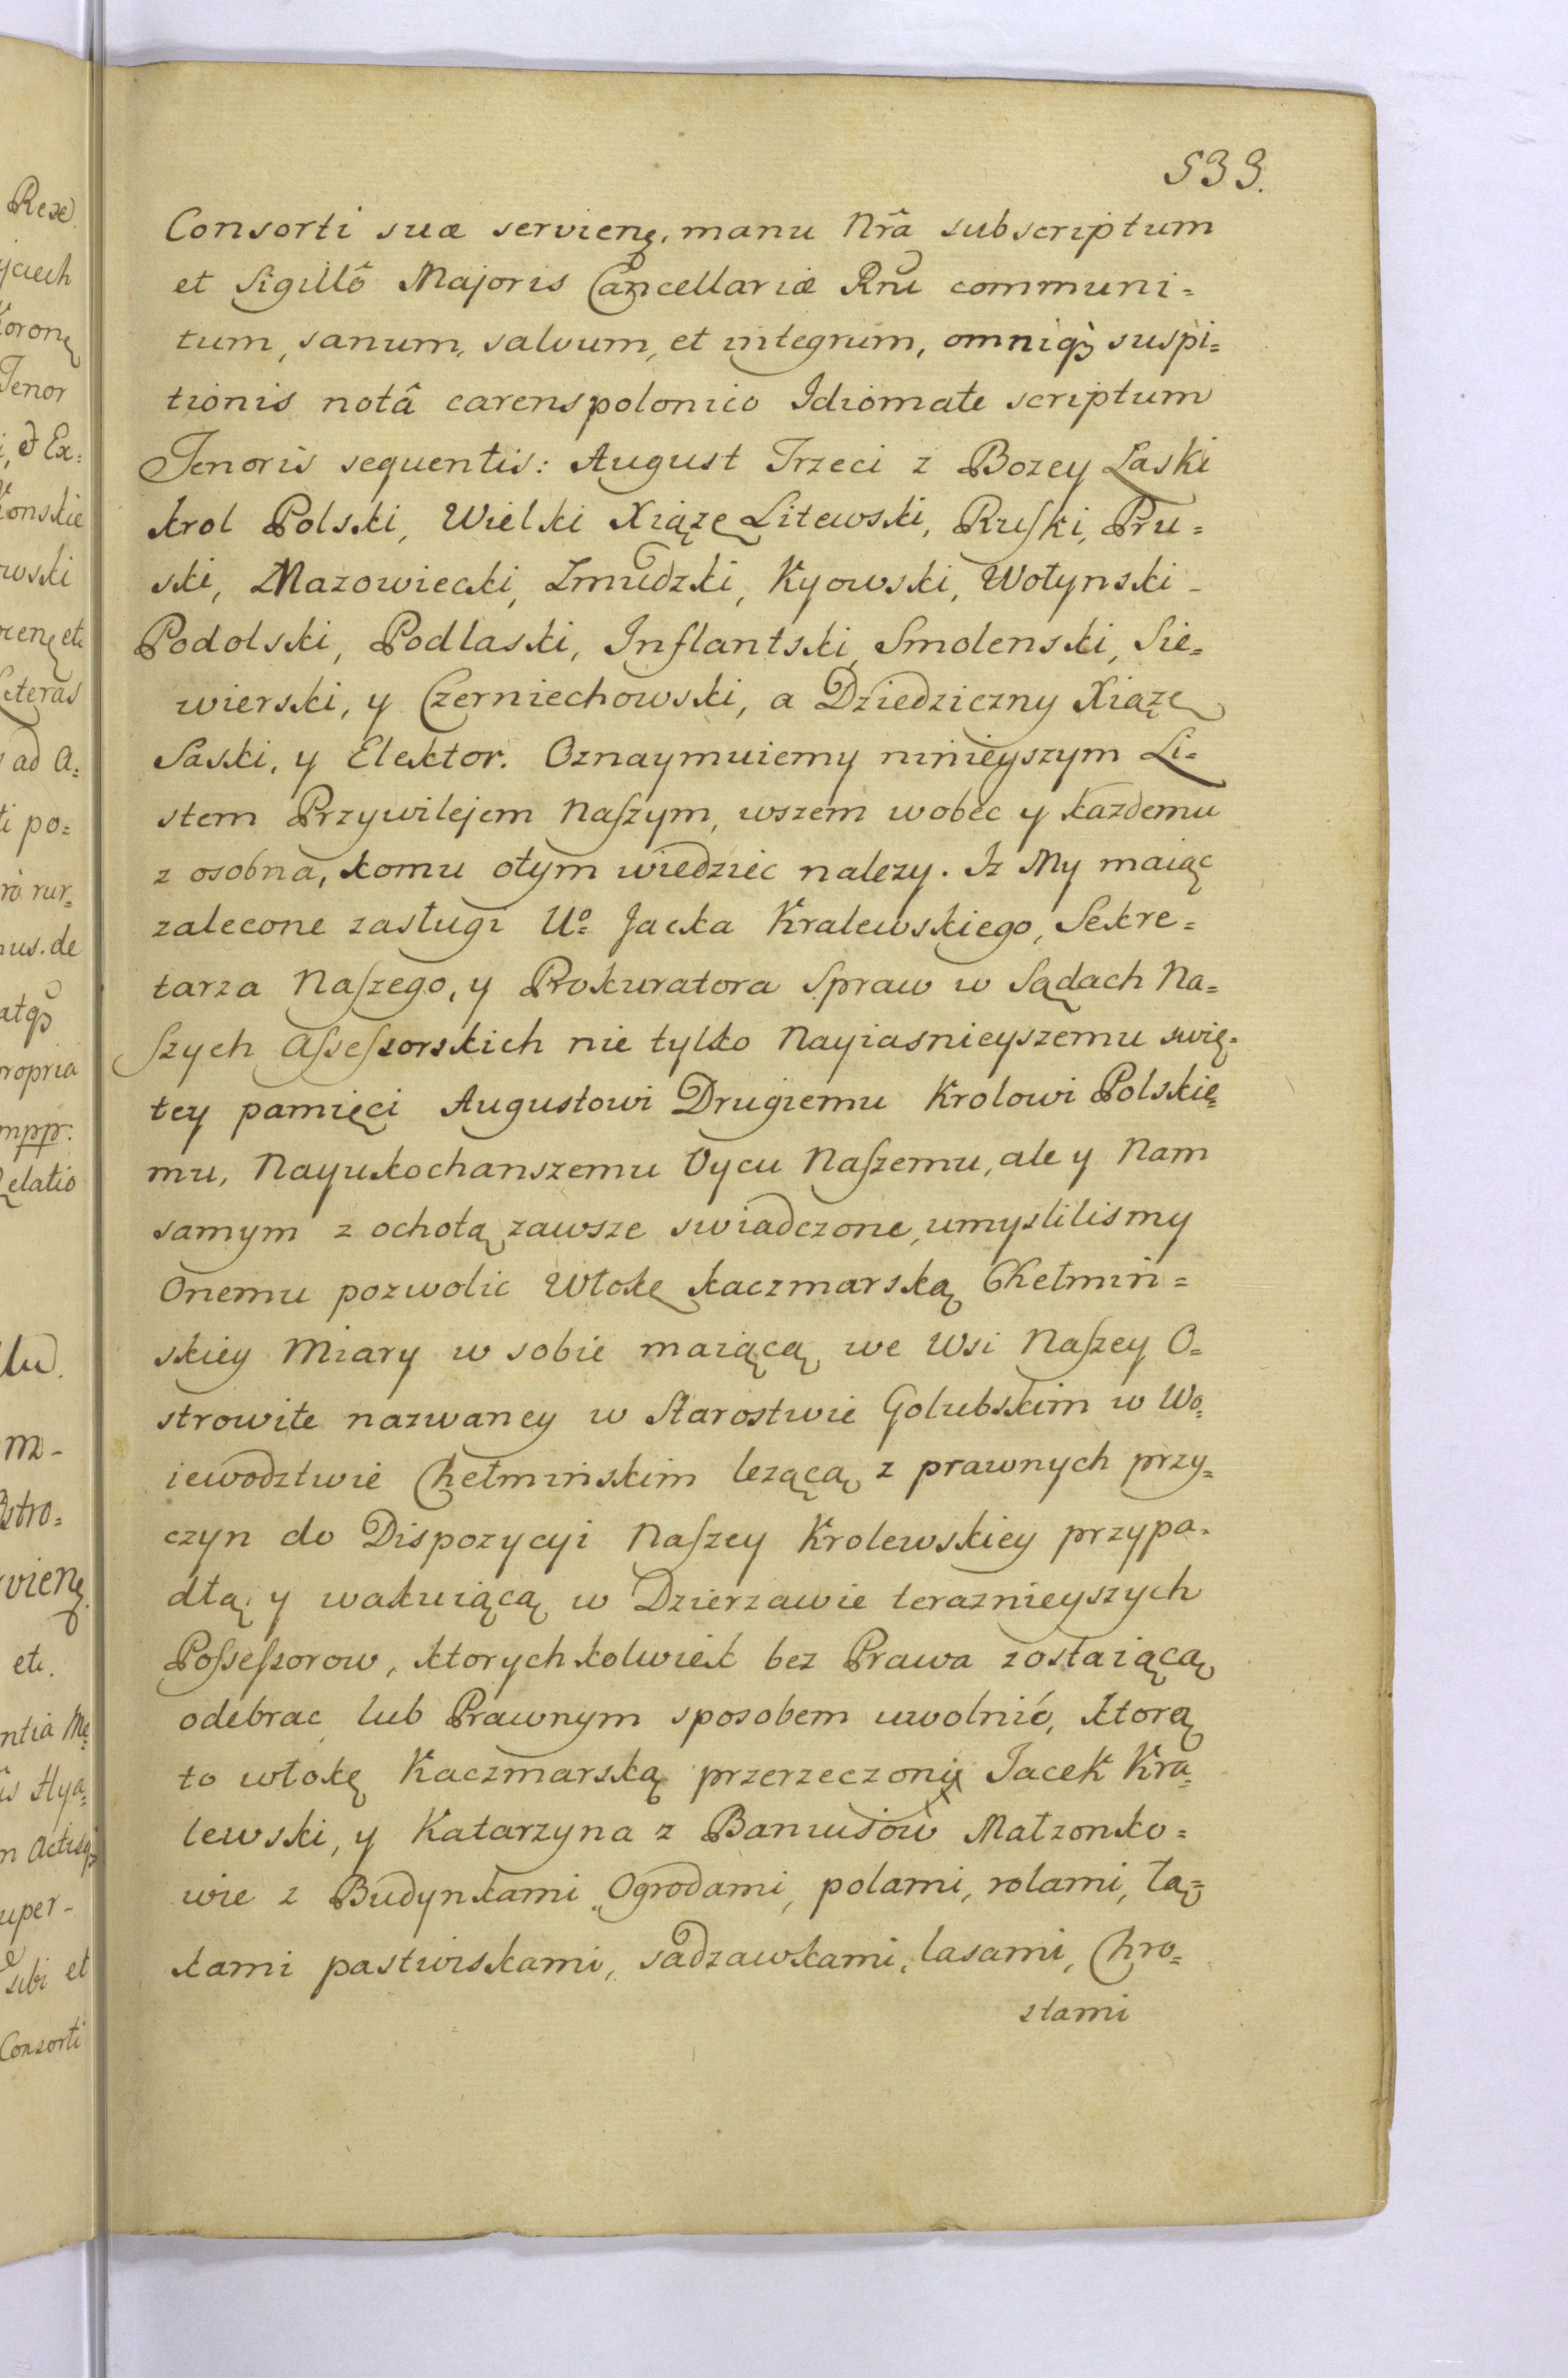 533.
Consorti suæ servienꝫ, manu Nrâ subscriptum
et Sigillô Majoris Cancellariæ Rnĩ communi=
tum, sanum, salvum, et integrum, omniqꝫ suspi=
tionis notâ carens polonico Idiomate scriptum
Tenoris sequentis: August Trzeci z Bozey Laski
krol Polski, Wielki Xiązę Litewski, Ruſki, Pru=
ski, Mazowiecki, Zmudzki, Kyowski, Wołynski
Podolski, Podlaski, Inflantski, Smolenski, Sie=
wierski, y Czerniechowski, a Dziedziczny Xiązę
Saski, y Elektor. Oznaymuiemy ninieyszym Li=
stem Przywilejem Naſzym, wszem wobec y kazdemu
z osobna, komu otym wiedziec nalezy. Iz My maiąc
zalecone zasługi Uº Jacka Kralewskiego, Sekre=
tarza Naſzego, y Prokuratora Spraw w Sądach Na=
ſzych Aſseſsorskich nie tylko Nayiasnieyszemu swię=
tey pamięci Augustowi Drugiemu Krolowi Polskie=
mu, Nayukochanszemu Oycu Naſzemu, ale y Nam
samym z ochotą zawsze swiadczone, umyslilismy
Onemu pozwolic Włokę kaczmarską Chełmiń=
skiey Miary w sobie maiącą we Wsi Naſzey O=
strowite nazwaney w Starostwie Golubskim w Wo=
iewodztwie Chełmińskim lezącą z prawnych przy=
czyn do Dispozycyi Naſzey Krolewskiey przypa=
dłą y wakuiącą w Dzierzawie teraznieyszych
Poſseſsorow, ktorychkolwiek bez Prawa zostaiącą
odebrac lub Prawnym sposobem uwolnić, ktorą
to włokę Kaczmarską przerzeczony Jacek Kra=
lewski, y Katarzyna z Małzonko=
wie z Budynkami, Ogrodami, polami, rolami, łą=
kami pastwiskami, sadzawkami, lasami, Chro=
stami